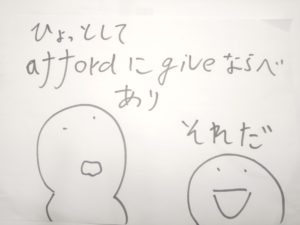 ひょっとして
affordにgiveならべ
あり
それだ